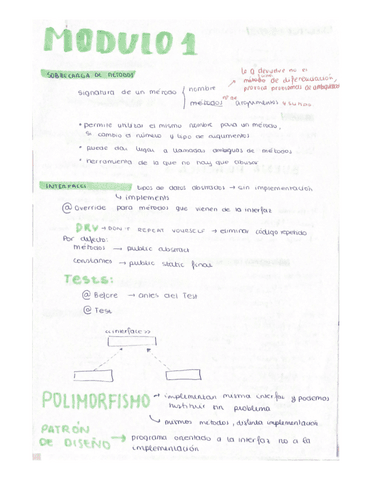 MODULO 1
SOBRECARGA DE MÉTODOS
signatura de un método { nombre
nº de argumentos
lo q devuelve no es
método de diferenciación,
provoca problemas de ambigüedad
• permite utilizar el mismo nombre para un método,
si cambia el número y tipo de argumentos
• puede dar lugar a llamadas ambiguas de métodos
• herramienta de la que no hay que abusar
INTERFACES
tipos de datos abstractos → sin implementación
↳ implements
@Override para métodos que vienen de la interfaz
DRY → DON'T REPEAT YOURSELF → eliminar código repetido
Por defecto:
métodos → public abstract
constantes → public static final
Tests:
@Before → antes del Test
@Test
<<interface>>
POLIMORFISMO → implementan misma interfaz y podemos
sustituir sin problema
↳ mismos métodos, distinta implementación
PATRÓN
DE DISEÑO → programa orientado a la interfaz no a la
implementación